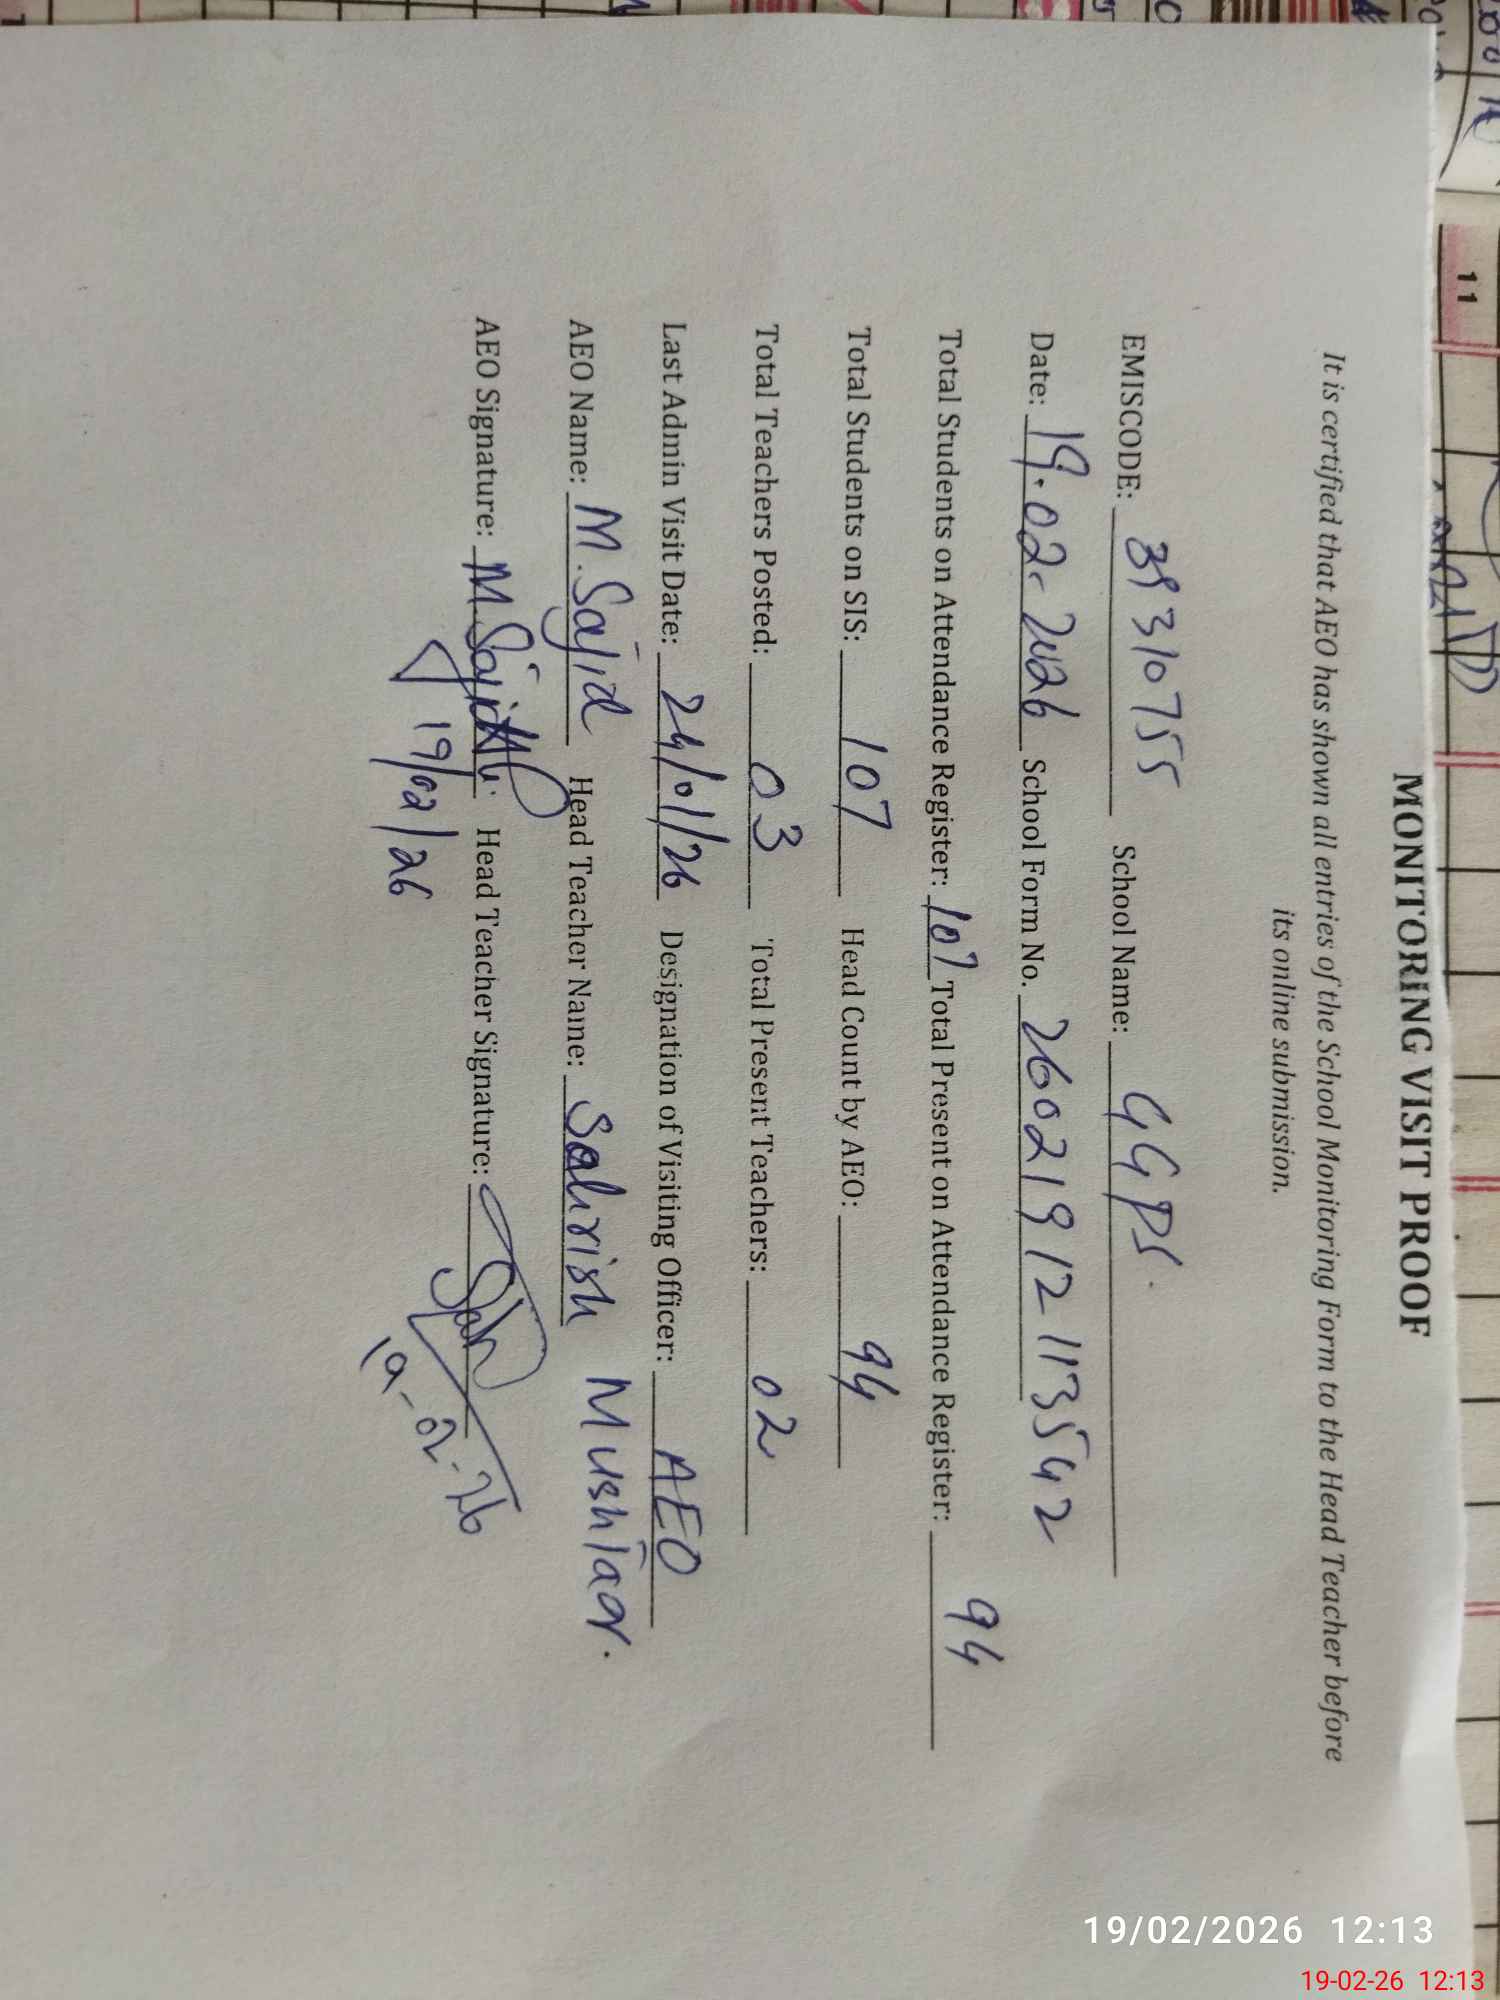 MONITORING VISIT PROOF
It is certified that AEO has shown all entries of the School Monitoring Form to the Head Teacher before
its online submission.
EMISCODE: 39310755 School Name: GGPS.
Date: 19.02.2026 School Form No. 26021912113542
Total Students on Attendance Register: 107 Total Present on Attendance Register: 94
Total Students on SIS: 107 Head Count by AEO: 94
Total Teachers Posted: 03 Total Present Teachers: 02
Last Admin Visit Date: 24/01/26 Designation of Visiting Officer: AEO
AEO Name: M.Sajid Head Teacher Name: Sahrish Mushtaq.
AEO Signature: M.Sajid Head Teacher Signature:
19/02/26 19-02-26
11
19/02/2026 12:13
19-02-26 12:13